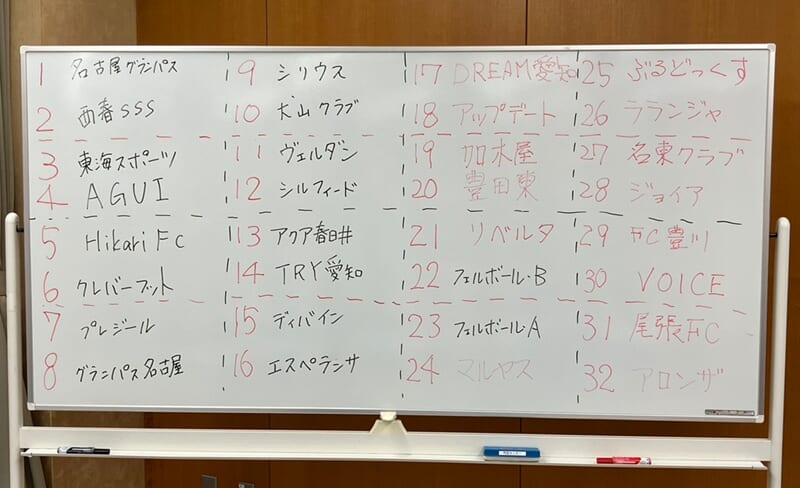 1 名古屋グランパス
2 西春SSS
3 東海スポーツ
4 AGUI
5 Hikari FC
6 クレバーフット
7 プレジール
8 グランパス名古屋
9 シリウス
10 犬山クラブ
11 ヴェルダン
12 シルフィード
13 アクア春日井
14 TRY愛知
15 ディバイン
16 エスペランサ
17 DREAM愛知
18 アップデート
19 加木屋
20 豊田東
21 リベルタ
22 フェルボール・B
23 フェルボール・A
24 マルヤス
25 ぶるどっくす
26 ラランジャ
27 名東クラブ
28 ジョイア
29 FC豊川
30 VOICE
31 尾張FC
32 アロンザ